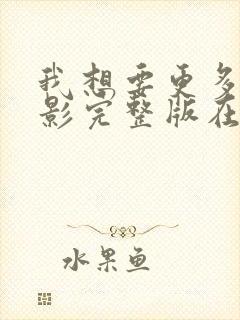 我想要更多
影完整版在
水果鱼